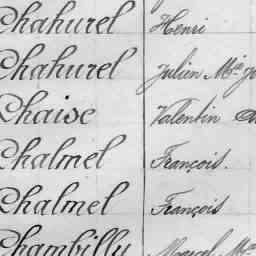 Chahurel Henri
Chahurel Julien Mie
Chaise Valentin
Chalmel François.
Chalmel François
Chambilly Marcel